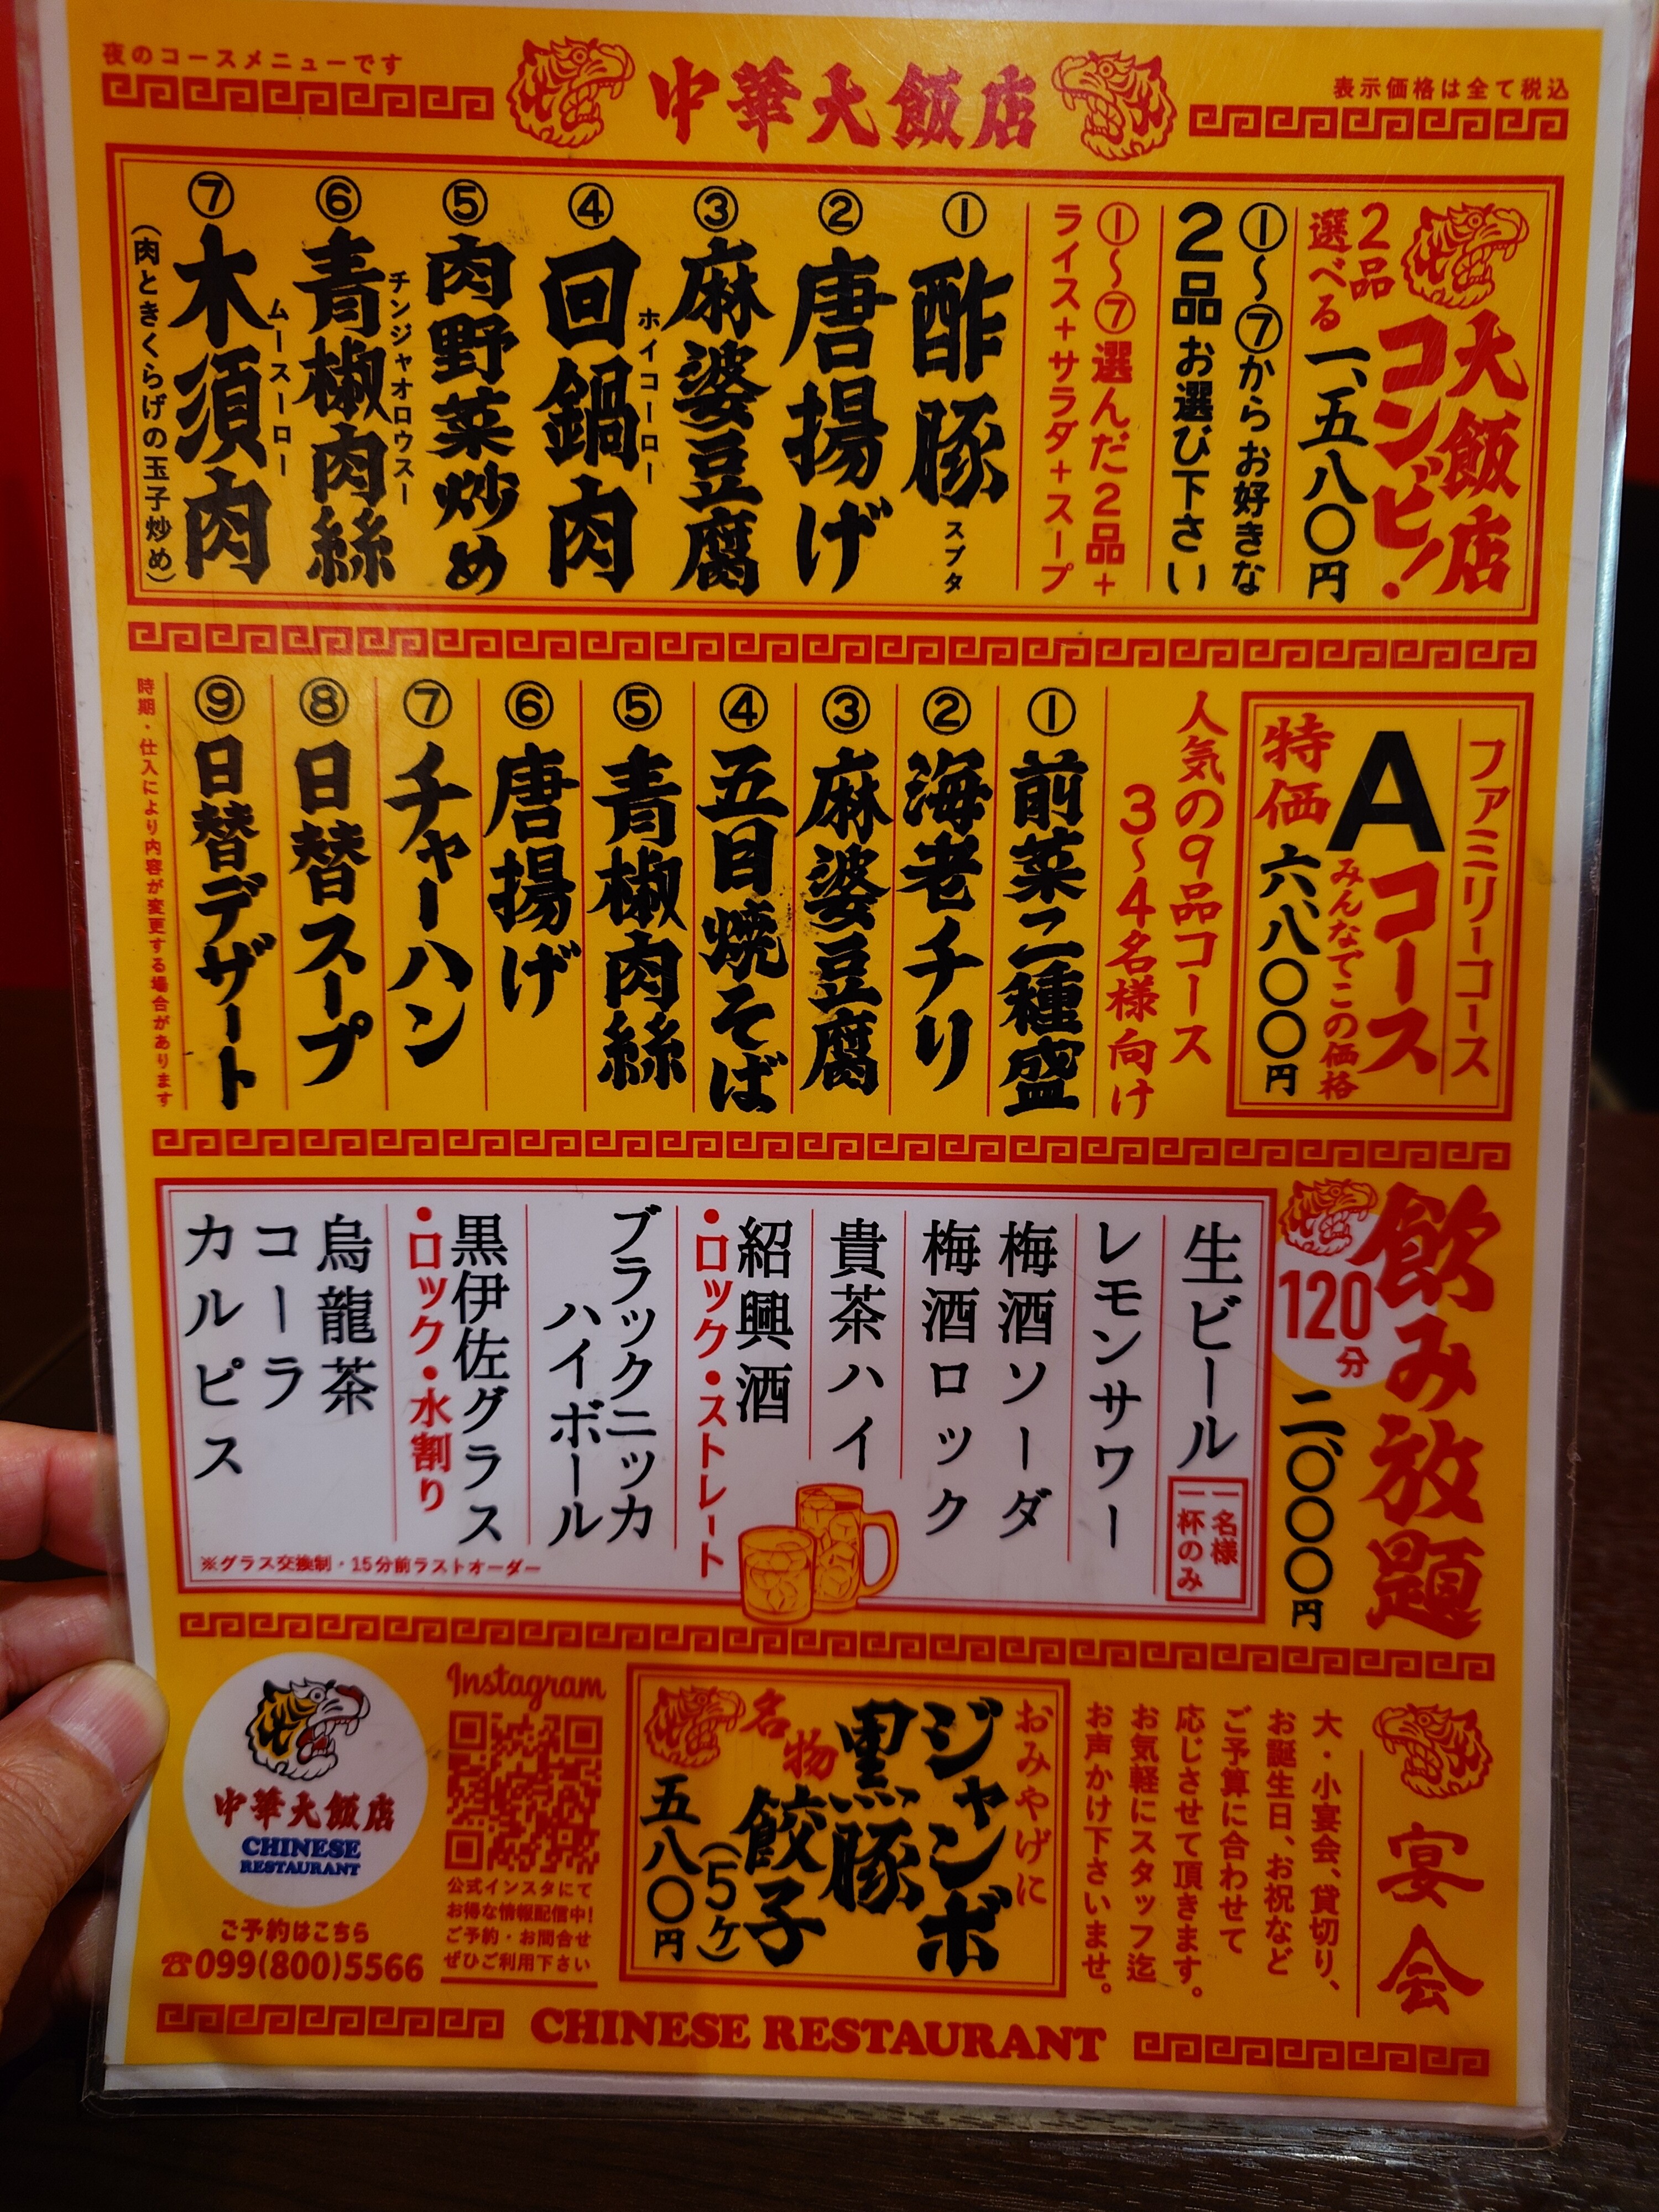 夜のコースメニューです
中華大飯店
表示価格は全て税込
大飯店
コンビ!
2品
選べる
一、五八〇円
①〜⑦からお好きな
2品お選び下さい
①〜⑦選んだ2品+
ライス+サラダ+スープ
①酢豚
スブタ
②唐揚げ
③麻婆豆腐
④回鍋肉
ホイコーロー
⑤肉野菜炒め
⑥青椒肉絲
チンジャオロウスー
⑦木須肉
ムースーロー
(肉ときくらげの玉子炒め)
ファミリーコース
Aコース
みんなでこの価格
特価六八〇〇円
人気の9品コース
3〜4名様向け
①前菜二種盛
②海老チリ
③麻婆豆腐
④五目焼そば
⑤青椒肉絲
⑥唐揚げ
⑦チャーハン
⑧日替スープ
⑨日替デザート
時期・仕入により内容が変更する場合があります
飲み放題
120分
二、〇〇〇円
生ビール
一名様
一杯のみ
レモンサワー
梅酒ソーダ
梅酒ロック
貴茶ハイ
紹興酒
・ロック・ストレート
ブラックニッカ
ハイボール
黒伊佐グラス
・ロック・水割り
烏龍茶
コーラ
カルピス
※グラス交換制・15分前ラストオーダー
宴会
大・小宴会、貸切り、
お誕生日、お祝など
ご予算に合わせて
応じさせて頂きます。
お気軽にスタッフ迄
お声かけ下さいませ。
おみやげに
ジャンボ
黒豚
餃子
(5ケ)
名物
五八〇円
Instagram
公式インスタにて
お得な情報配信中!
ご予約・お問合せ
ぜひご利用下さい
中華大飯店
CHINESE
RESTAURANT
ご予約はこちら
☎099(800)5566
CHINESE RESTAURANT